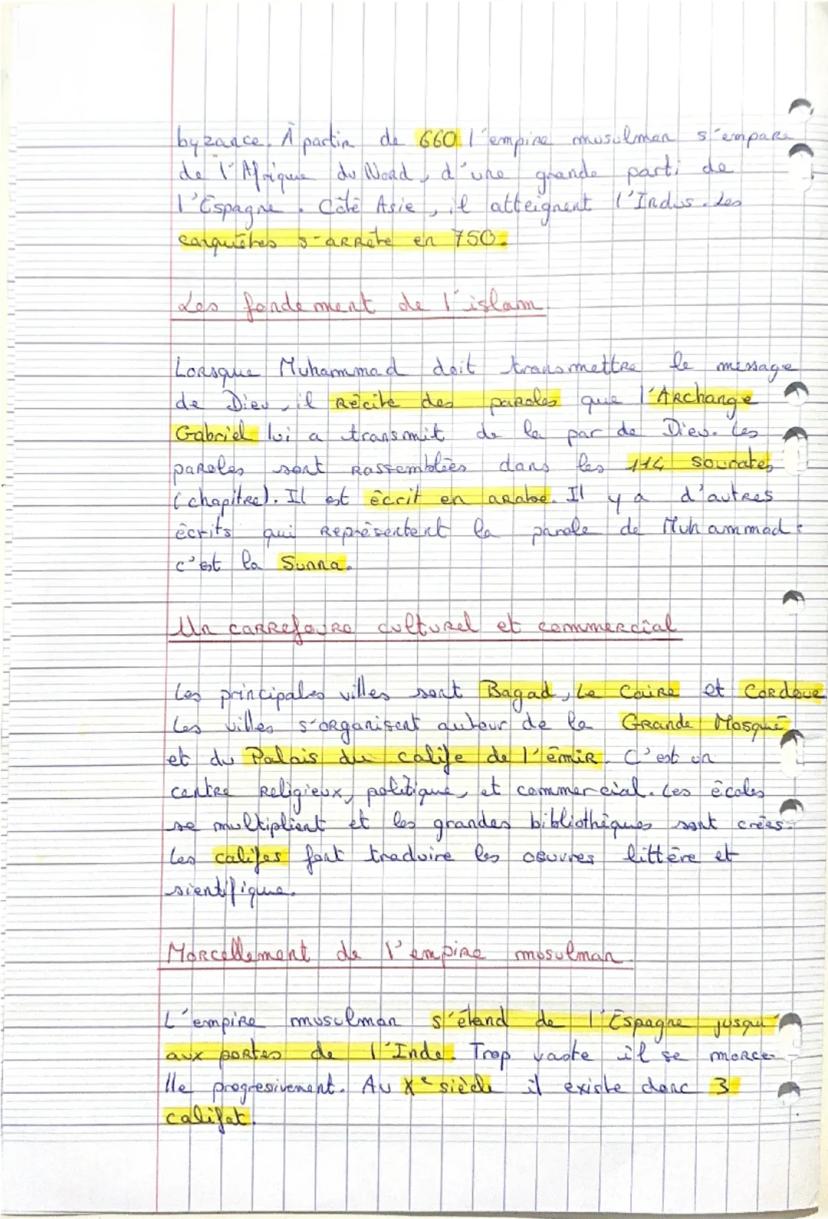 byzance. À partir de 660 l'empire musulman s'empare
de l'Afrique du Nord, d'une grande parti de
l'Espagne. Côté Asie, il atteignent l'Indus. Les
conquêtes s'arrête en 750.
Les fondement de l'islam
Lorsque Muhammad doit transmettre le message
de Dieu, il récite des paroles que l'Archange
Gabriel lui a transmit de la par de Dieu. Les
paroles sont rassemblées dans les 114 sourates
(chapitre). Il est écrit en arabe. Il y a d'autres
écrits qui représentent la parole de Muhammad :
c'est la Sunna.
Un carrefoure culturel et commercial
Les principales villes sont Bagad, Le Caire et Cordoue
Les villes s'organisent autour de la Grande Mosqué
et du Palais du calife de l'émir. C'est un
centre religieux, politique, et commercial. Les écoles
se multiplient et les grandes bibliothèques sont crées.
Les califes font traduire les oeuvres littére et
sientifique.
Morcellement de l'empire musulman
L'empire musulman s'étend de l'Espagne jusqu'
aux portes de l'Inde. Trop vaste il se morce-
lle progresivement. Au Xe siècle il existe donc 3
califat.